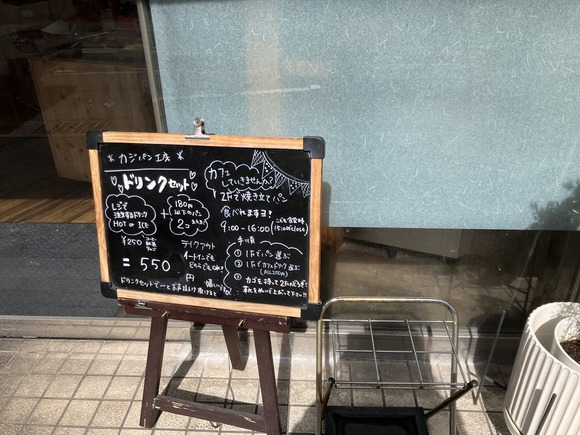 カジパン工房
ドリンクセット
レジで
注文するドリンク
HOT or ICE
¥250
+
180円
以下のパン
2コ
= 550
円
テイクアウト
イートインでも
どちらでもOK!
ドリンクセットで
カフェ
していきませんか?
2Fで焼き立てパン
食べれますヨ!
9:00-16:00
15:00 close
手順
① 1Fでパン選ぶ
② 1Fでカフェドリンク選ぶ
(ALL250円)
③ カゴを持って2Fへどうぞ!